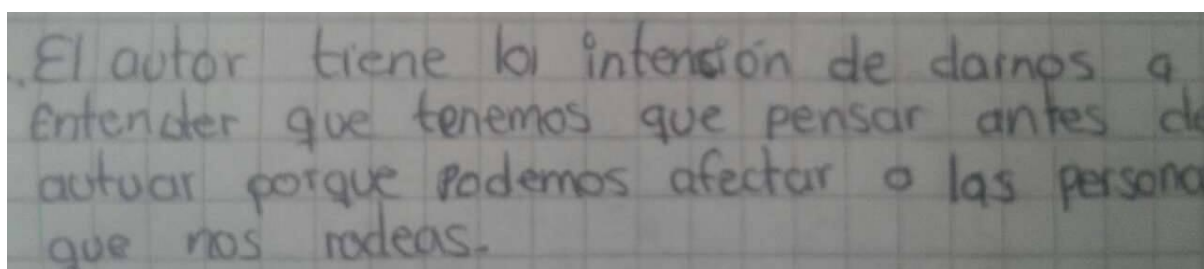 . El autor tiene la intensión de darnos a
entender que tenemos que pensar antes d
autuar porque Podemos afectar a las persona
que nos rodeas.